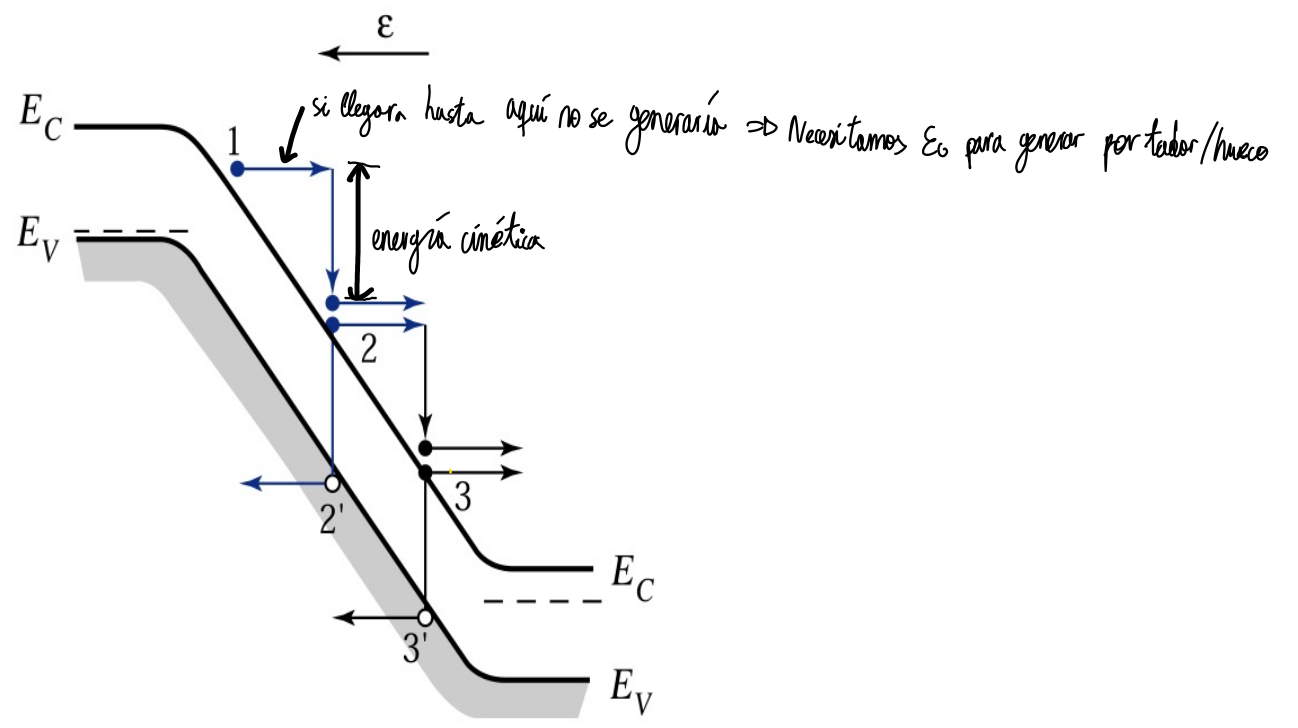 ε
E_C
si llegara hasta aquí no se generaría ⇒ Necesitamos EG para generar portador/hueco
1
E_V
energía cinética
2
2'
3
3'
E_C
E_V